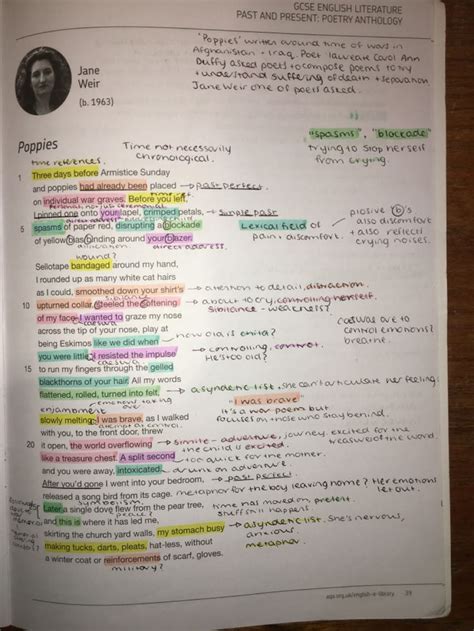 GCSE ENGLISH LITERATURE
PAST AND PRESENT: POETRY ANTHOLOGY
'Poppies' written around time of wars in
Afghanistan + Iraq. Poet laureate Carol Ann
Duffy asked poets to compose poems to try
+ understand suffering of death + separation
Jane Weir one of poets asked.
Jane
Weir
(b. 1963)
"spasms", "blockade"
trying to stop herself
from crying
Poppies
Time not necessarily
chronological.
time references.
1 Three days before Armistice Sunday
and poppies had already been placed → past perfect.
on individual war graves. Before you left,
I pinned one onto your lapel, crimped petals, → simple past
5 spasms of paper red, disrupting a blockade
Lexical field of
pain + discomfort
plosive b's
also discomfort
+ also reflect
crying noises.
of yellow bias binding around your blazer.
alliteration direct address.
wound?
Sellotape bandaged around my hand,
I rounded up as many white cat hairs
as I could, smoothed down your shirt's → attention to detail, distraction.
sibilance
10 upturned collar, steeled the softening → about to cry, controlling herself.
sibilance - weakness?
of my face. I wanted to graze my nose
caesura
caesura are to
control emotions?
breathe.
across the tip of your nose, play at
being Eskimos like we did when
how old is child?
you were little. I resisted the impulse → controlling, control.
He's too old?
caesura
15 to run my fingers through the gelled
blackthorns of your hair. All my words
flattened, rolled, turned into felt, → asyndetic list, she can't articulate her feeling.
enjambment
"I was brave"
slowly melting. I was brave, as I walked
It's a war poem but
focuses on those who stay behind.
with you, to the front door, threw
20 it open, the world overflowing → simile - adventure, journey, excited for the
the child is excited
like a treasure chest. A split second → too quick for the mother.
and you were away, intoxicated. → drunk on adventure.
After you'd gone I went into your bedroom, → past perfect.
released a song bird from its cage. metaphor for the boy leaving home? Her emotions
let out.
symbolism
Later a single dove flew from the pear tree,
peace
time has moved on present
stuff is happen
and this is where it has led me,
skirting the church yard walls, my stomach busy → asyndetic list. She's nervous,
anxious
making tucks, darts, pleats, hat-less, without
metaphor
a winter coat or reinforcements of scarf, gloves.
military?
aqa.org.uk/english-e-library
39